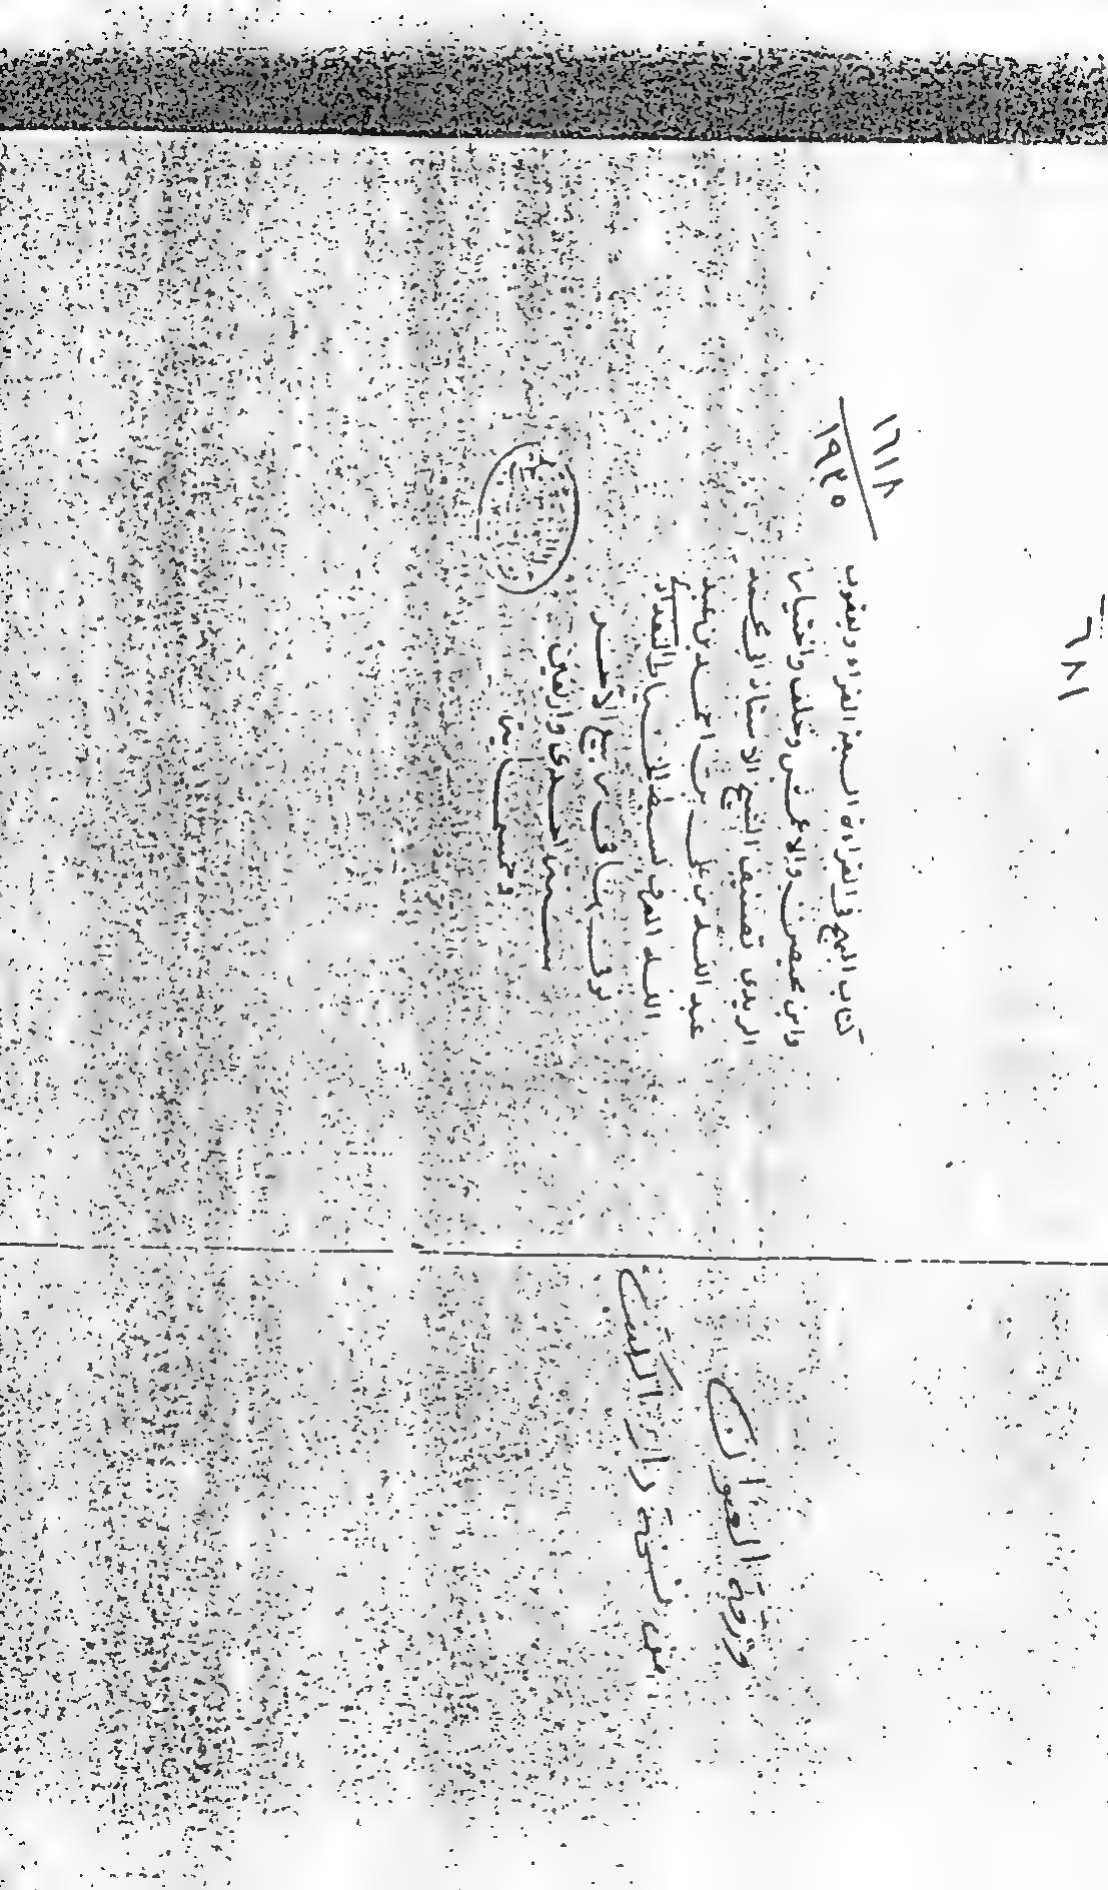 ١٦١١٨
١٩٣٥
٦٨١
كتاب المبهج في القراءة السبعة القراء ويعقوب
وابن محيصن والاعمش وخلف واختيار
اليزيدي تصنيف الشيخ الاستاذ ابي محمد
عبد اللـه بن علي بن احمد بن عبد
اللـه المعروف بسبط الخياط البغداد
توفى ثاني ربيع الآخر
سنة احدى واربعين
وخمسمائة
ورقة العنوان
من نسخة دار الكتب